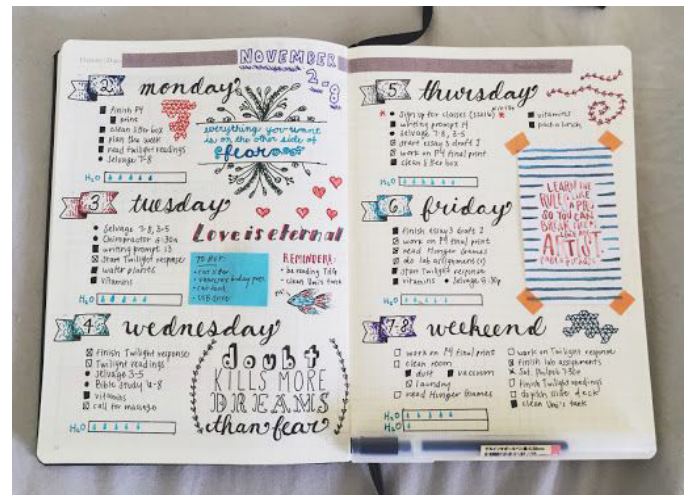 NOVEMBER
2-8
2 monday
finish P4
print
clean litter box
plan the week
read twilight readings
Selvage 7-8
H₂O
everything you want
is on the other side of
fear
3 tuesday
Selvage 7-8, 3-5
Chiropractor
writing prompt 13
start Twilight response
water plants
vitamins
H₂O
Love is eternal
TO BUY:
REMINDERS:
clean Uni's tank
4 wednesday
finish Twilight response
Twilight readings
Selvage 3-5
Bible Study 6-8
vitamins
call for massage
H₂O
doubt
KILLS MORE
DREAMS
than fear
5 thursday
sign up for classes
writing prompt 14
Selvage 7-8, 3-5
start essay 3 draft 2
work on P4 final print
clean litter box
vitamins
pack a lunch
H₂O
LEARN THE
RULES LIKE
A PRO
SO YOU CAN
BREAK THEM
LIKE AN
ARTIST
6 friday
finish essay 3 draft 2
work on P4 final print
read Hunger Games
do lab assignment(s)
start Twilight response
vitamins
H₂O
7-8 weekend
work on P4 final print
clean room
dust
vacuum
laundry
read Hunger Games
work on Twilight response
finish lab assignments
finish Twilight readings
clean Uni's tank
H₂O
H₂O